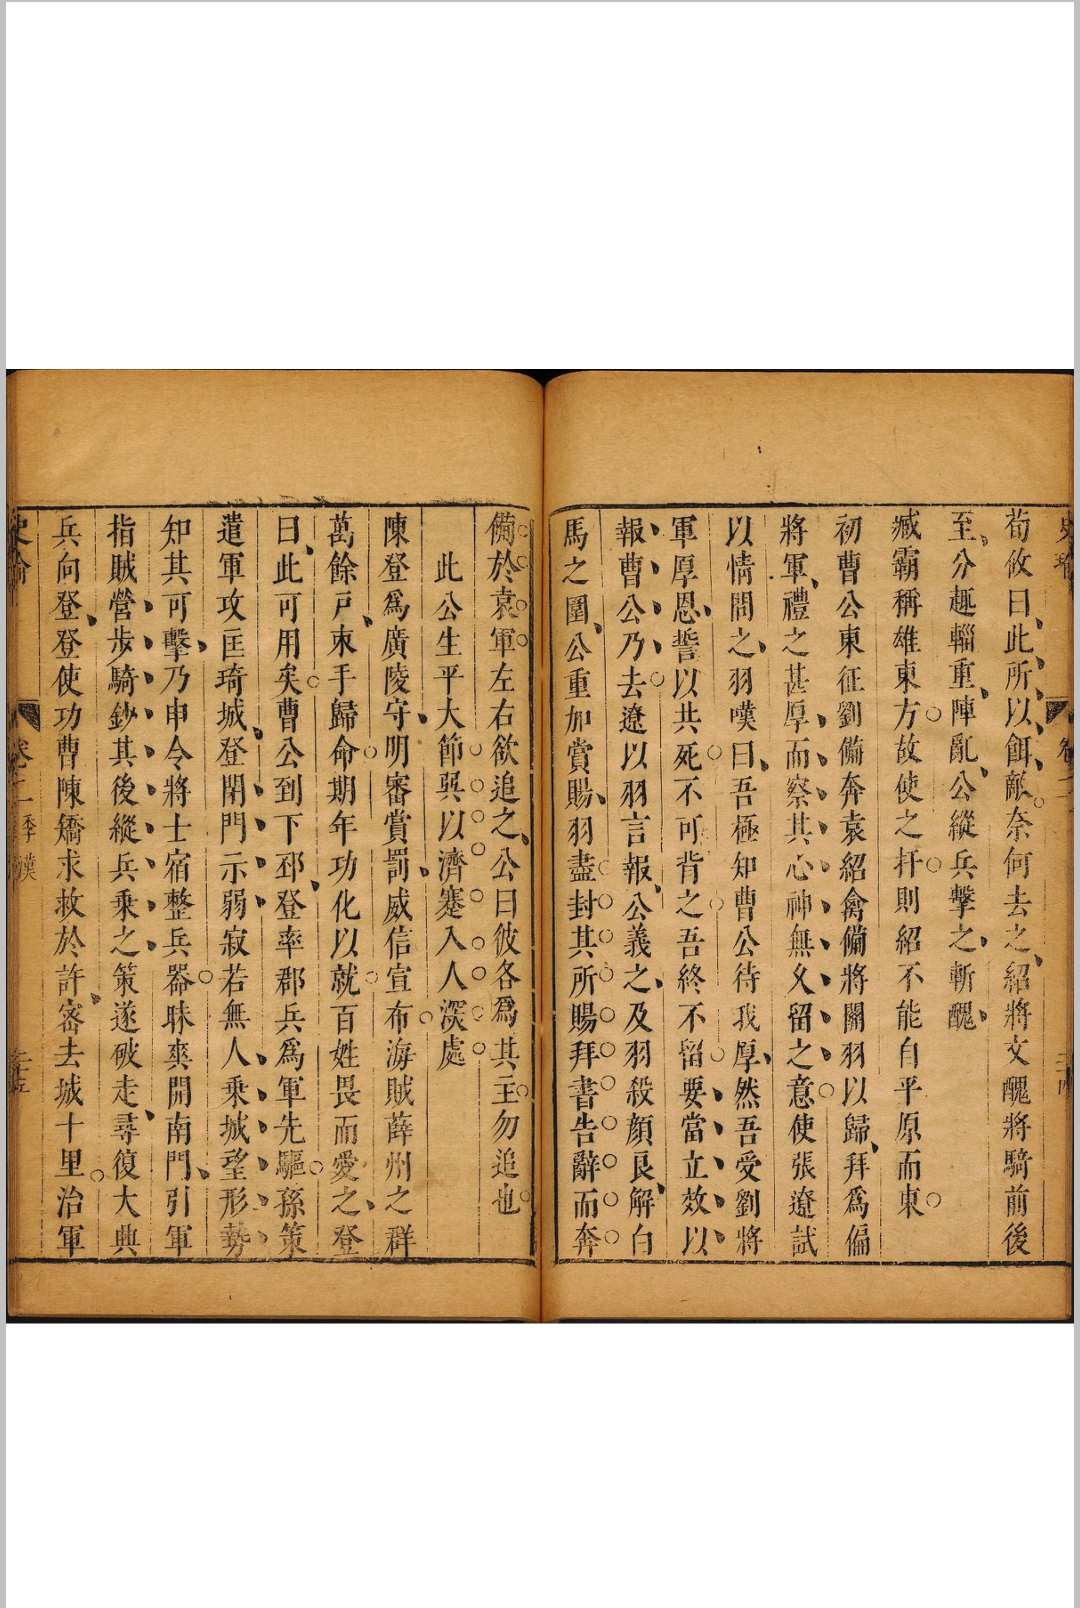 荀攸曰此所以餌敵奈何去之紹將文醜將騎前後
至分趣輜重陣亂公縱兵擊之斬醜
臧霸稱雄東方故使之扞則紹不能自平原而東
初曹公東征劉備奔袁紹禽備將關羽以歸拜為偏
將軍禮之甚厚而察其心神無久留之意使張遼試
以情問之羽嘆曰吾極知曹公待我厚然吾受劉將
軍厚恩誓以共死不可背之吾終不留要當立效以
報曹公乃去遼以羽言報公義之及羽殺顏良解白
馬之圍公重加賞賜羽盡封其所賜拜書告辭而奔
備於袁軍左右欲追之公曰彼各為其主勿追也
此公生平大節與以濟蹇入人深處
陳登為廣陵守明審賞罰威信宣布海賊薛州之群
萬餘戶束手歸命期年功化以就百姓畏而愛之登
曰此可用矣曹公到下邳登率郡兵為軍先驅孫策
遣軍攻匡琦城登閉門示弱寂若無人乘城望形勢
知其可擊乃申令將士宿整兵器昧爽開南門引軍
指賊營步騎鈔其後縱兵乘之策遂破走尋復大興
兵向登登使功曹陳矯求救於許密去城十里治軍
卷二 季漢